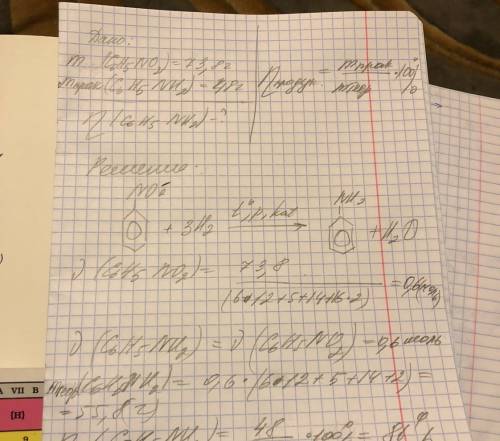 Дано:
m (C6H5NO2) = 73,8 г
mпрак (C6H5-NH2) = 48 г
η продук = mпрак / mтеор · 100%
η (C6H5-NH2) - ?
Решение:
NO2 NH2
+ 3H2 t°, p, kat → + H2O
ν (C6H5NO2) = 73,8 / (6·12+5+14+16·2) = 0,6 (моль)
ν (C6H5-NH2) = ν (C6H5NO2) = 0,6 моль
mтеор (C6H5NH2) = 0,6 · (6·12+5+14+2) =
= 55,8 г)
η (C6H5-NH2) = 48 · 100% = 86%
A VII B
(H)
9